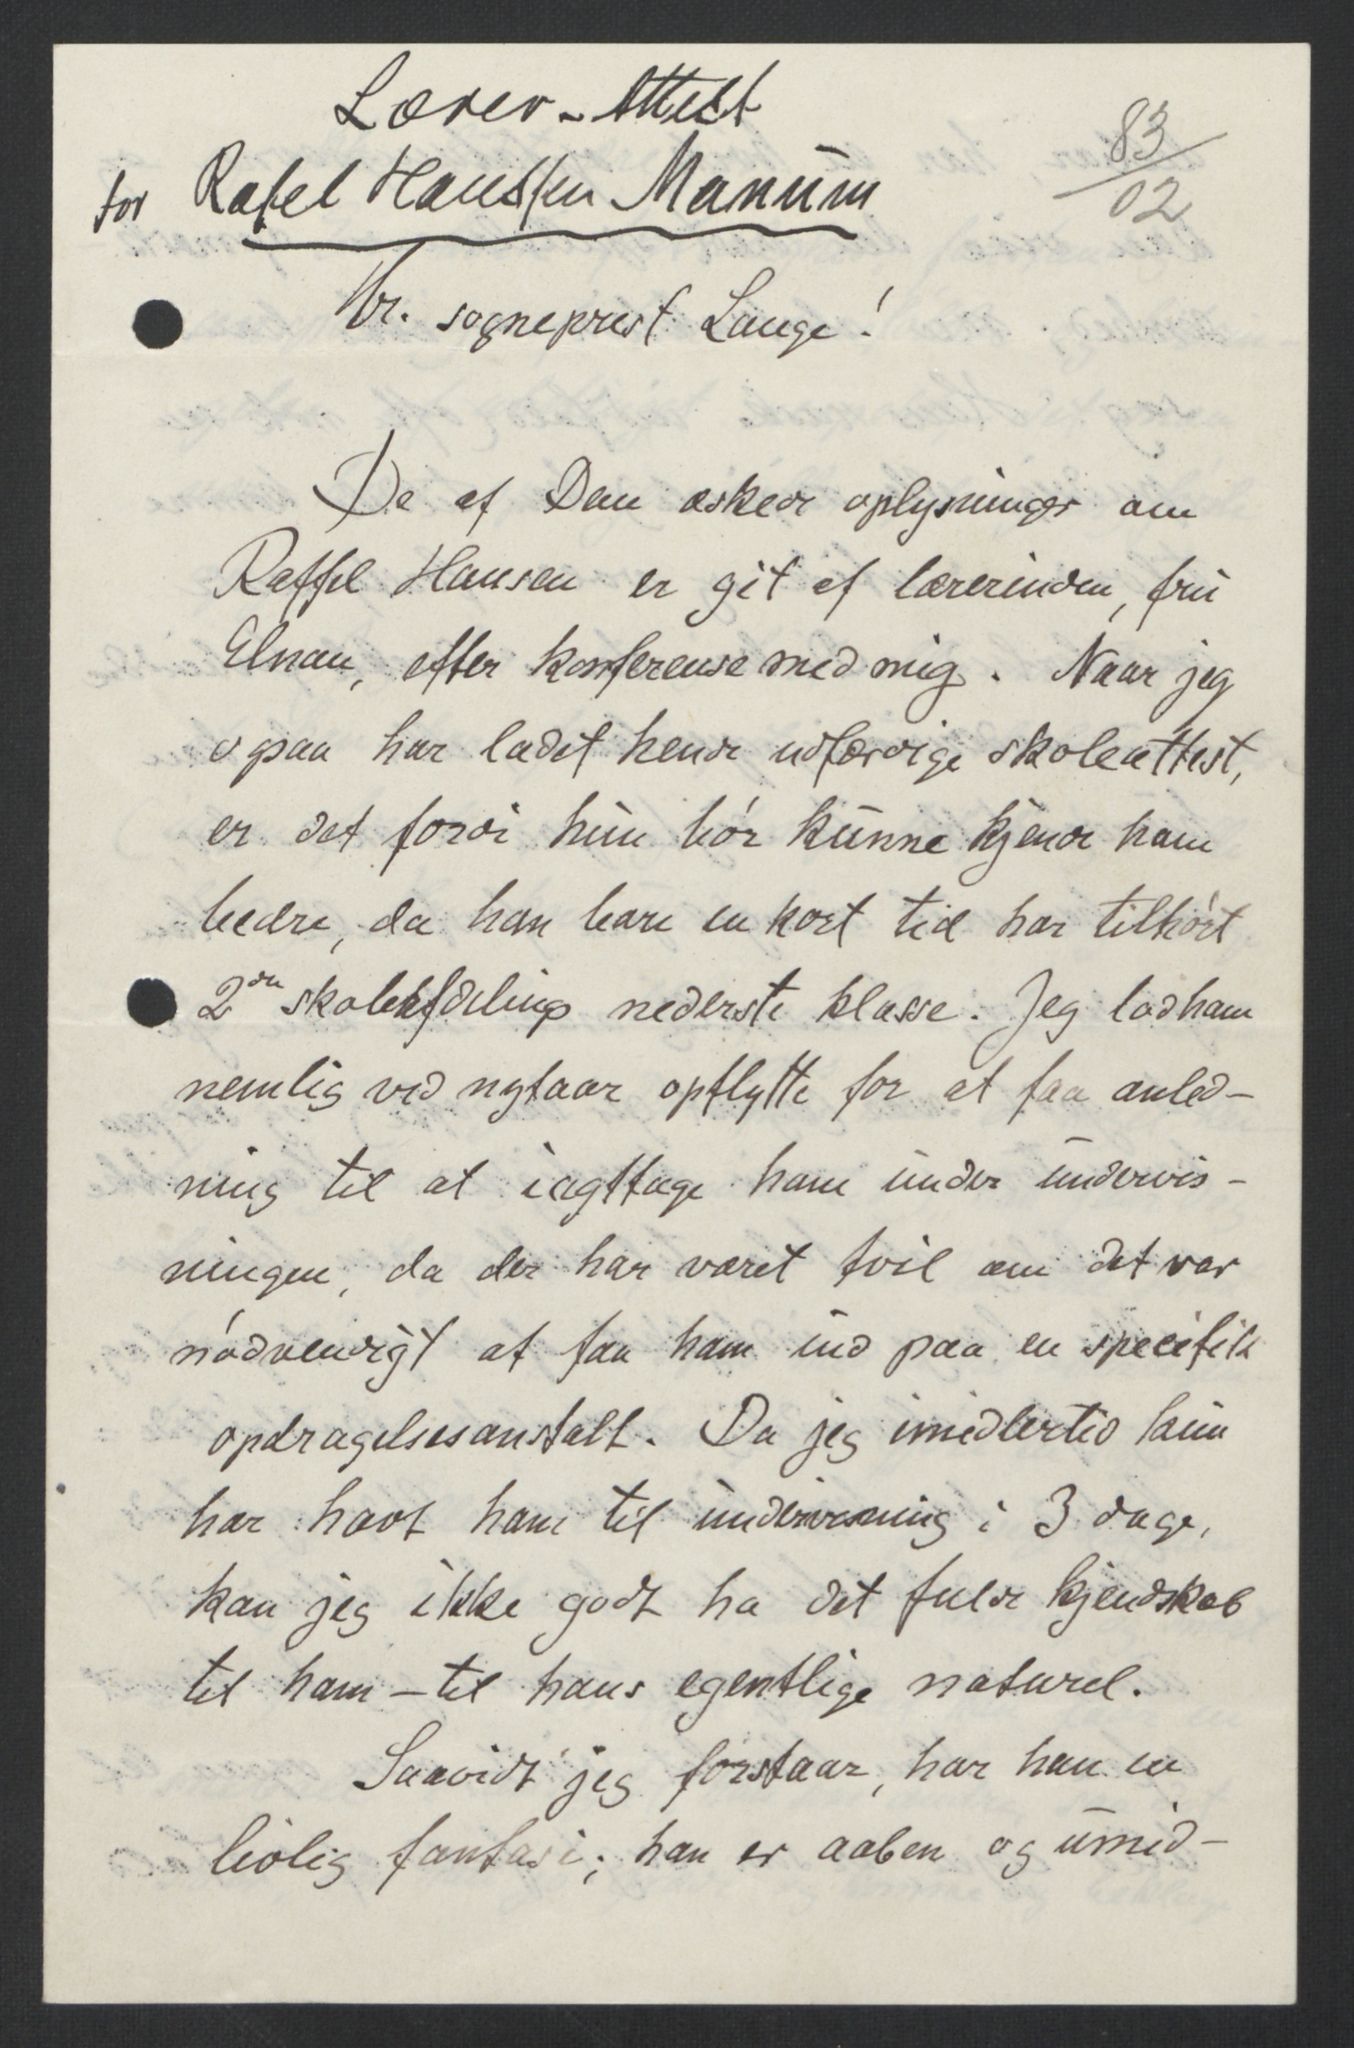 Lærer-Attest
83/02
for Rafel Hanssen Manum
Hr. sogneprest Lange!
De af Dem æskede oplysninger om
Raffel Hansen er git af lærerinden, fru
Elnan, efter konferense med mig. Naar jeg
ogsaa har ladet hende udfærdige skoleattest,
er det fordi hun bør kunne kjende ham
bedre, da han bare en kort tid har tilhørt
2den skoleafdelings nederste klasse. Jeg lod ham
nemlig ved nytaar opflytte for at faa anled-
ning til at iagttage ham under undervis-
ningen, da der har været tvil om det var
nødvendigt at faa ham ind paa en specifik
opdragelsesanstalt. Da jeg imidlertid kun
har havt ham til undervisning i 3 dage,
kan jeg ikke godt ha det fulde kjendskab
til ham – til hans egentlige naturel.
Saavidt jeg forstaar, har han en
livlig fantasi; han er aaben og umid-